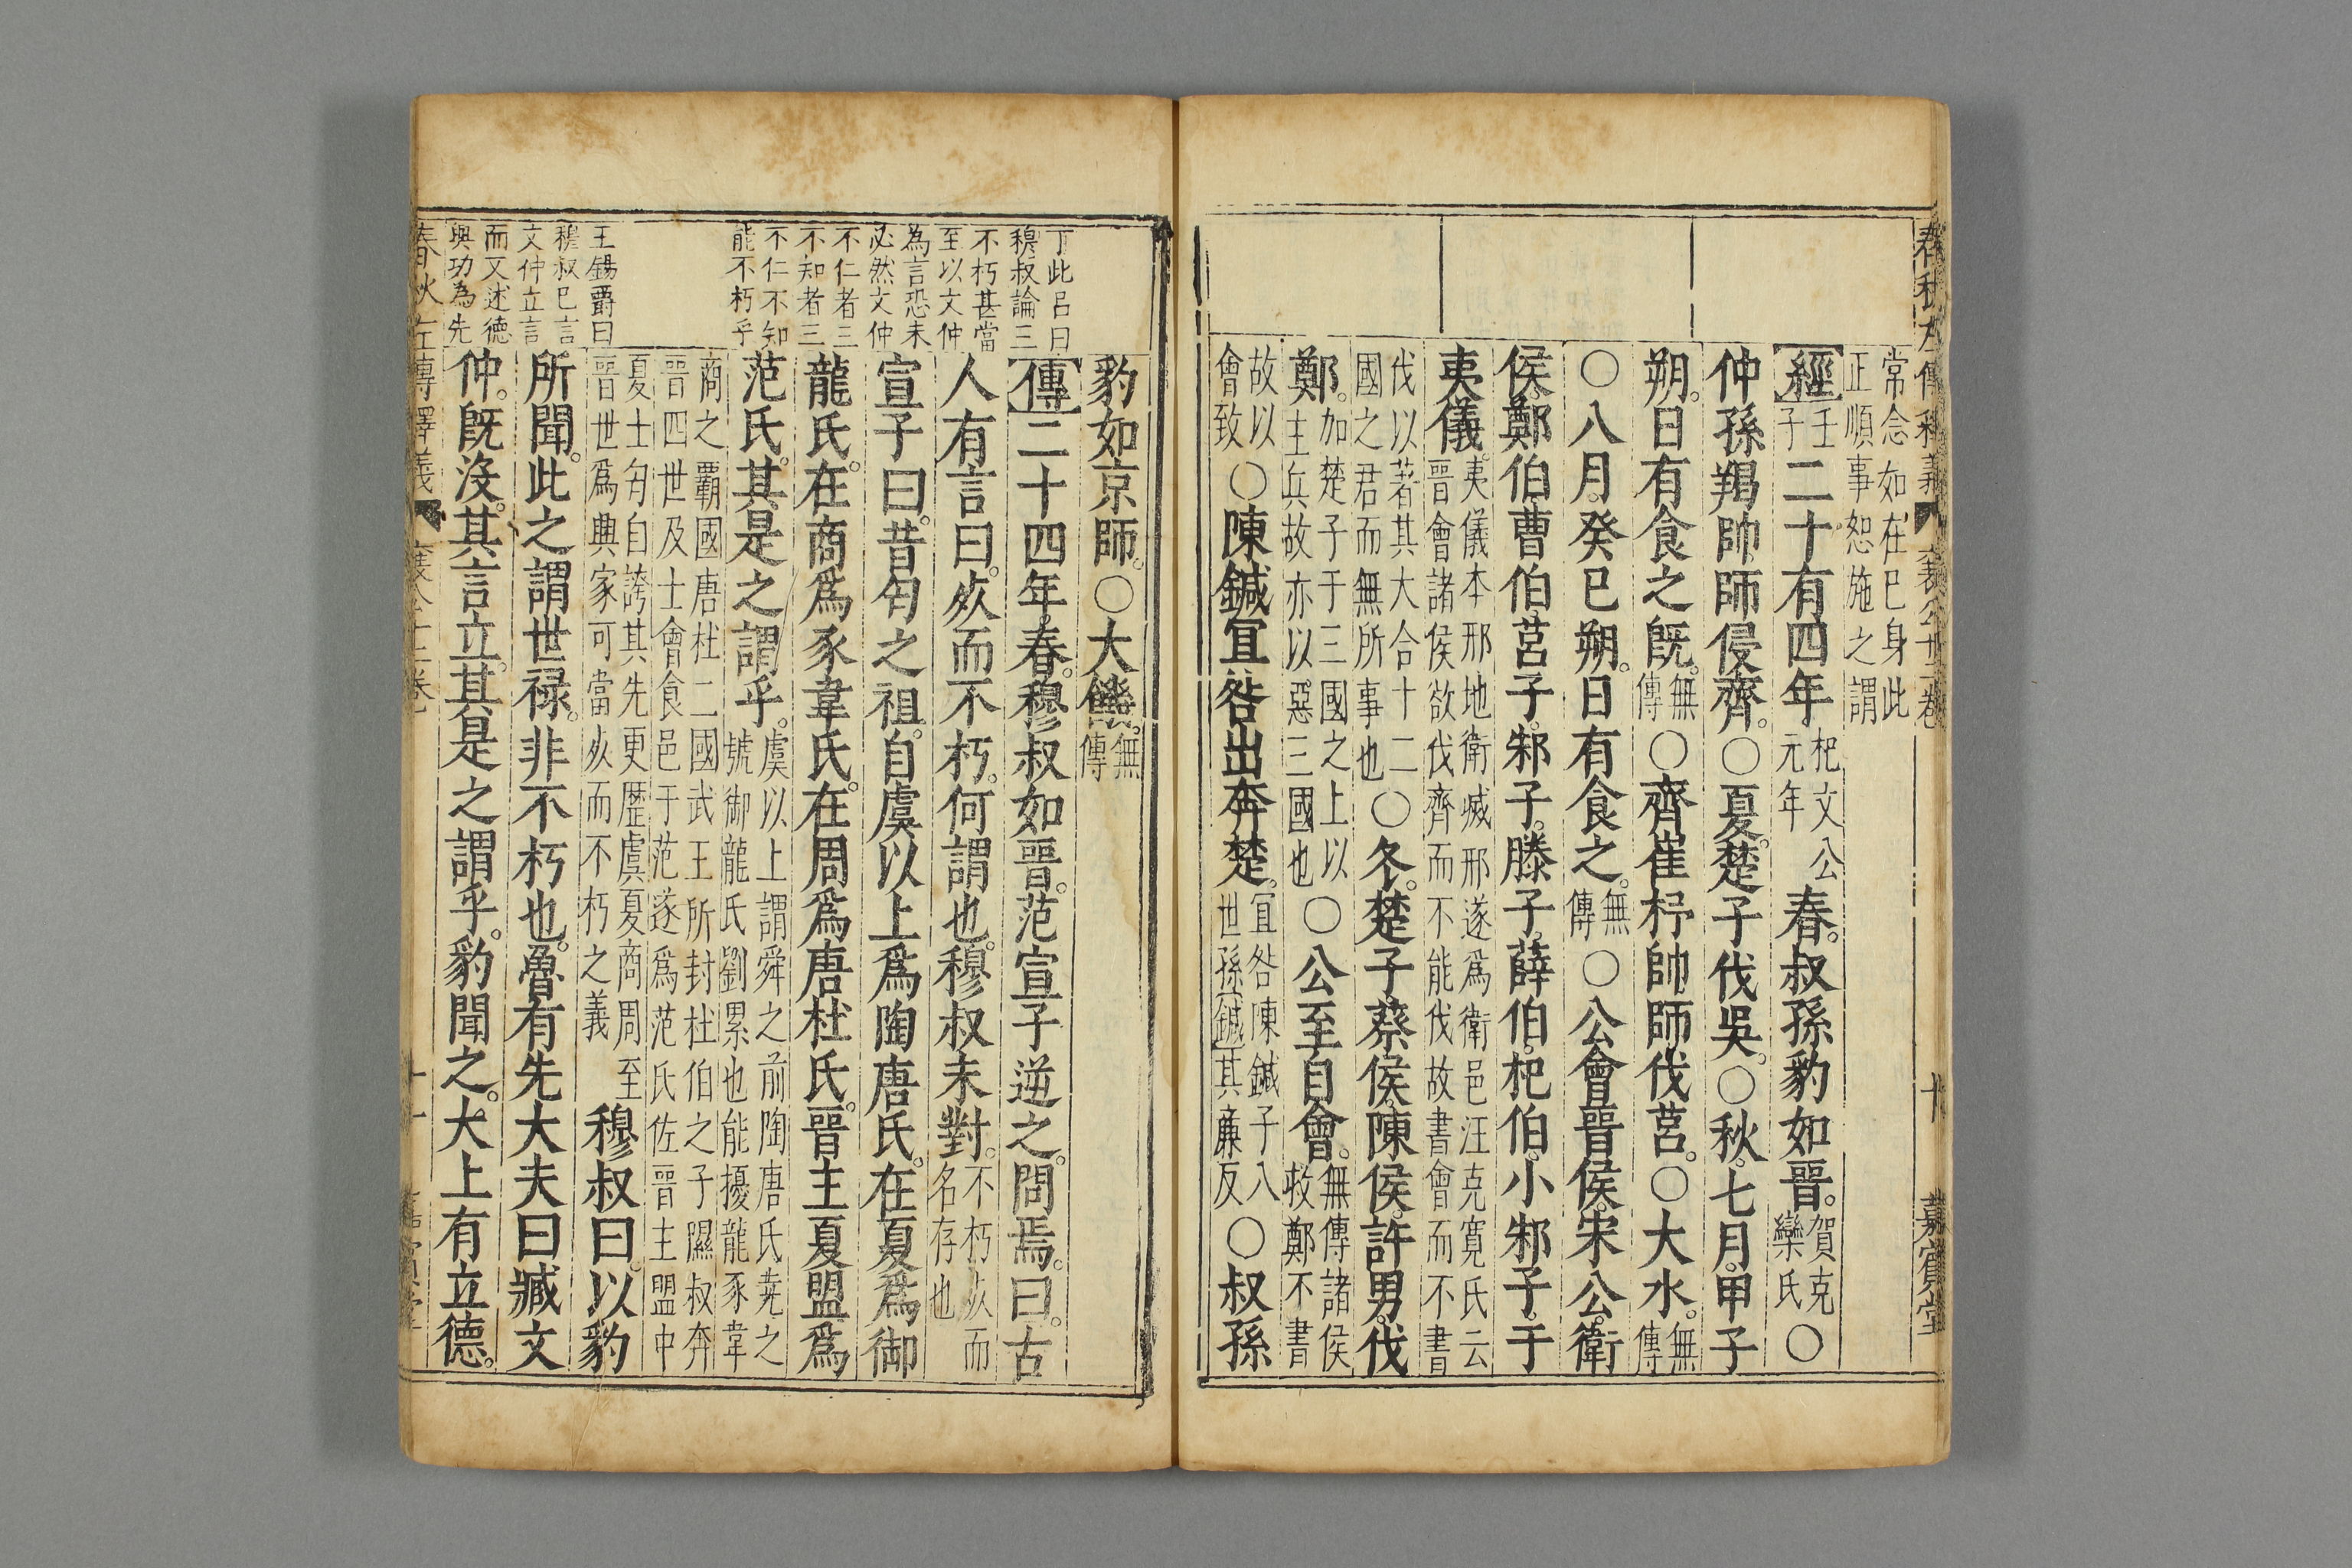 春秋左傳釋義 襄公十二卷 十 嘉賓堂
常念如在巳身此
正順事恕施之謂
經壬子二十有四年杞文公元年春。叔孫豹如晉。賀克欒氏〇
仲孫羯帥師侵齊。〇夏。楚子伐吳。〇秋。七月。甲子
朔。日有食之既。無傳〇齊崔杼帥師伐莒。〇大水。無傳
〇八月。癸巳朔。日有食之。無傳〇公會晉侯。宋公。衛
侯。鄭伯。曹伯。莒子。邾子。滕子。薛伯。杞伯。小邾子。于
夷儀。夷儀本邢地衛滅邢遂爲衛邑汪克寛氏云晉會諸侯欲伐齊而不能伐故書會而不書
伐以著其大合十二國之君而無所事也〇冬。楚子蔡侯。陳侯。許男。伐
鄭。加楚子于三國之上以主兵故亦以惡三國也〇公至自會。無傳諸侯救鄭不書
故以會致〇陳鍼宜咎出奔楚。宜咎陳鍼子八世孫鍼其廉反〇叔孫
丁此呂曰
穆叔論三
不朽甚當
至以文仲
為言恐未
必然文仲
不仁者三
不知者三
不仁不知
能不朽乎
王錫爵曰
穆叔巳言
文仲立言
而又述德
與功為先
豹如京師。〇大饑。無傳
傳二十四年。春。穆叔如晉。范宣子逆之。問焉。曰。古
人有言曰。死而不朽。何謂也。穆叔未對。不朽死而名存也
宣子曰。昔匄之祖。自虞以上爲陶唐氏。在夏爲御
龍氏。在商爲豕韋氏。在周爲唐杜氏。晉主夏盟爲
范氏。其是之謂乎。虞以上謂舜之前陶唐氏堯之號御龍氏劉累也能擾龍豕韋
商之覇國唐杜二國武王所封杜伯之子隰叔奔晉四世及士會食邑于范遂爲范氏佐晉主盟中
夏士匄自誇其先更歷虞夏商周至晉世爲興家可當死而不朽之義穆叔曰。以豹
所聞。此之謂世禄。非不朽也。魯有先大夫曰臧文
仲。旣沒。其言立。其是之謂乎。豹聞之。大上有立德。
春秋左傳釋義